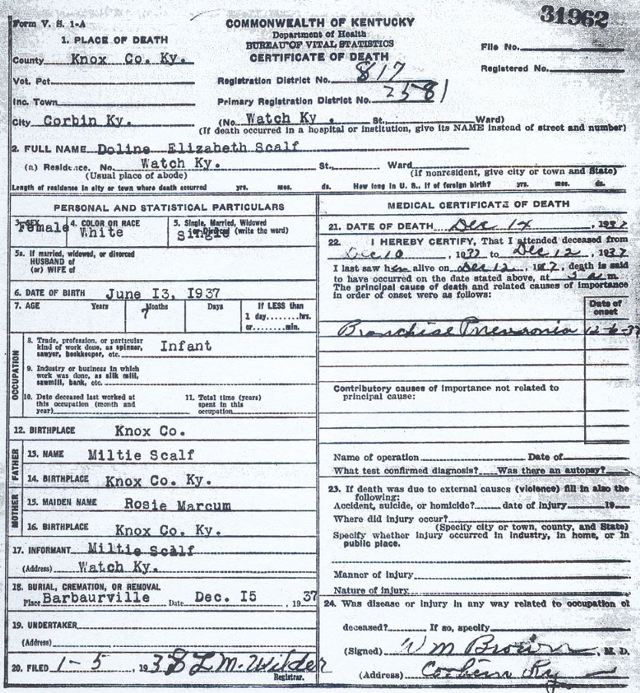 Form V. S. 1-A
COMMONWEALTH OF KENTUCKY
31962
Department of Health
BUREAU OF VITAL STATISTICS
CERTIFICATE OF DEATH
File No.
Registered No.
1. PLACE OF DEATH
County Knox Co. Ky.
Vot. Pct.
Inc. Town
City Corbin Ky.
Registration District No. 817
Primary Registration District No. 2581
(No. Watch Ky. St., Ward)
(If death occurred in a hospital or institution, give its NAME instead of street and number)
2. FULL NAME Doline Elizabeth Scalf
(a) Residence, No. Watch Ky. St., Ward
(Usual place of abode) (If nonresident, give city or town and State)
Length of residence in city or town where death occurred yrs. mos. ds. How long in U. S., if of foreign birth? yrs. mos. ds.
PERSONAL AND STATISTICAL PARTICULARS
3. SEX Female
4. COLOR OR RACE White
5. Single, Married, Widowed or Divorced (write the word) Single
5a. If married, widowed, or divorced
HUSBAND of
(or) WIFE of
6. DATE OF BIRTH June I3, I937
7. AGE Years Months Days If LESS than
1 day, hrs.
or min.
OCCUPATION
8. Trade, profession, or particular
kind of work done, as spinner,
sawyer, bookkeeper, etc. Infant
9. Industry or business in which
work was done, as silk mill,
sawmill, bank, etc.
10. Date deceased last worked at
this occupation (month and
year)
11. Total time (years)
spent in this
occupation
12. BIRTHPLACE Knox Co.
FATHER
13. NAME Miltie Scalf
14. BIRTHPLACE Knox Co. Ky.
MOTHER
15. MAIDEN NAME Rosie Marcum
16. BIRTHPLACE Knox Co. Ky.
17. INFORMANT Miltie Scalf
(Address) Watch Ky.
18. BURIAL, CREMATION, OR REMOVAL
Place Barbaurville Date Dec. I5, 1937
19. UNDERTAKER
(Address)
20. FILED 1-5, 1938 L M. Wilder
Registrar.
MEDICAL CERTIFICATE OF DEATH
21. DATE OF DEATH Dec 14, 1937
22. I HEREBY CERTIFY, That I attended deceased from
Dec 10, 1937 to Dec 12, 1937
I last saw her alive on Dec 12, 1937, death is said
to have occurred on the date stated above, at 3 a m.
The principal cause of death and related causes of importance
in order of onset were as follows:
Date of
onset
Bronchise Pneumonia 12-6-37
Contributory causes of importance not related to
principal cause:
Name of operation Date of
What test confirmed diagnosis? Was there an autopsy?
23. If death was due to external causes (violence) fill in also the
following:
Accident, suicide, or homicide? date of injury 19
Where did injury occur?
(Specify city or town, county, and State)
Specify whether injury occurred in industry, in home, or in
public place.
Manner of injury
Nature of injury
24. Was disease or injury in any way related to occupation of
deceased? If so, specify
(Signed) W M Brown, M. D.
(Address) Corbin Ky